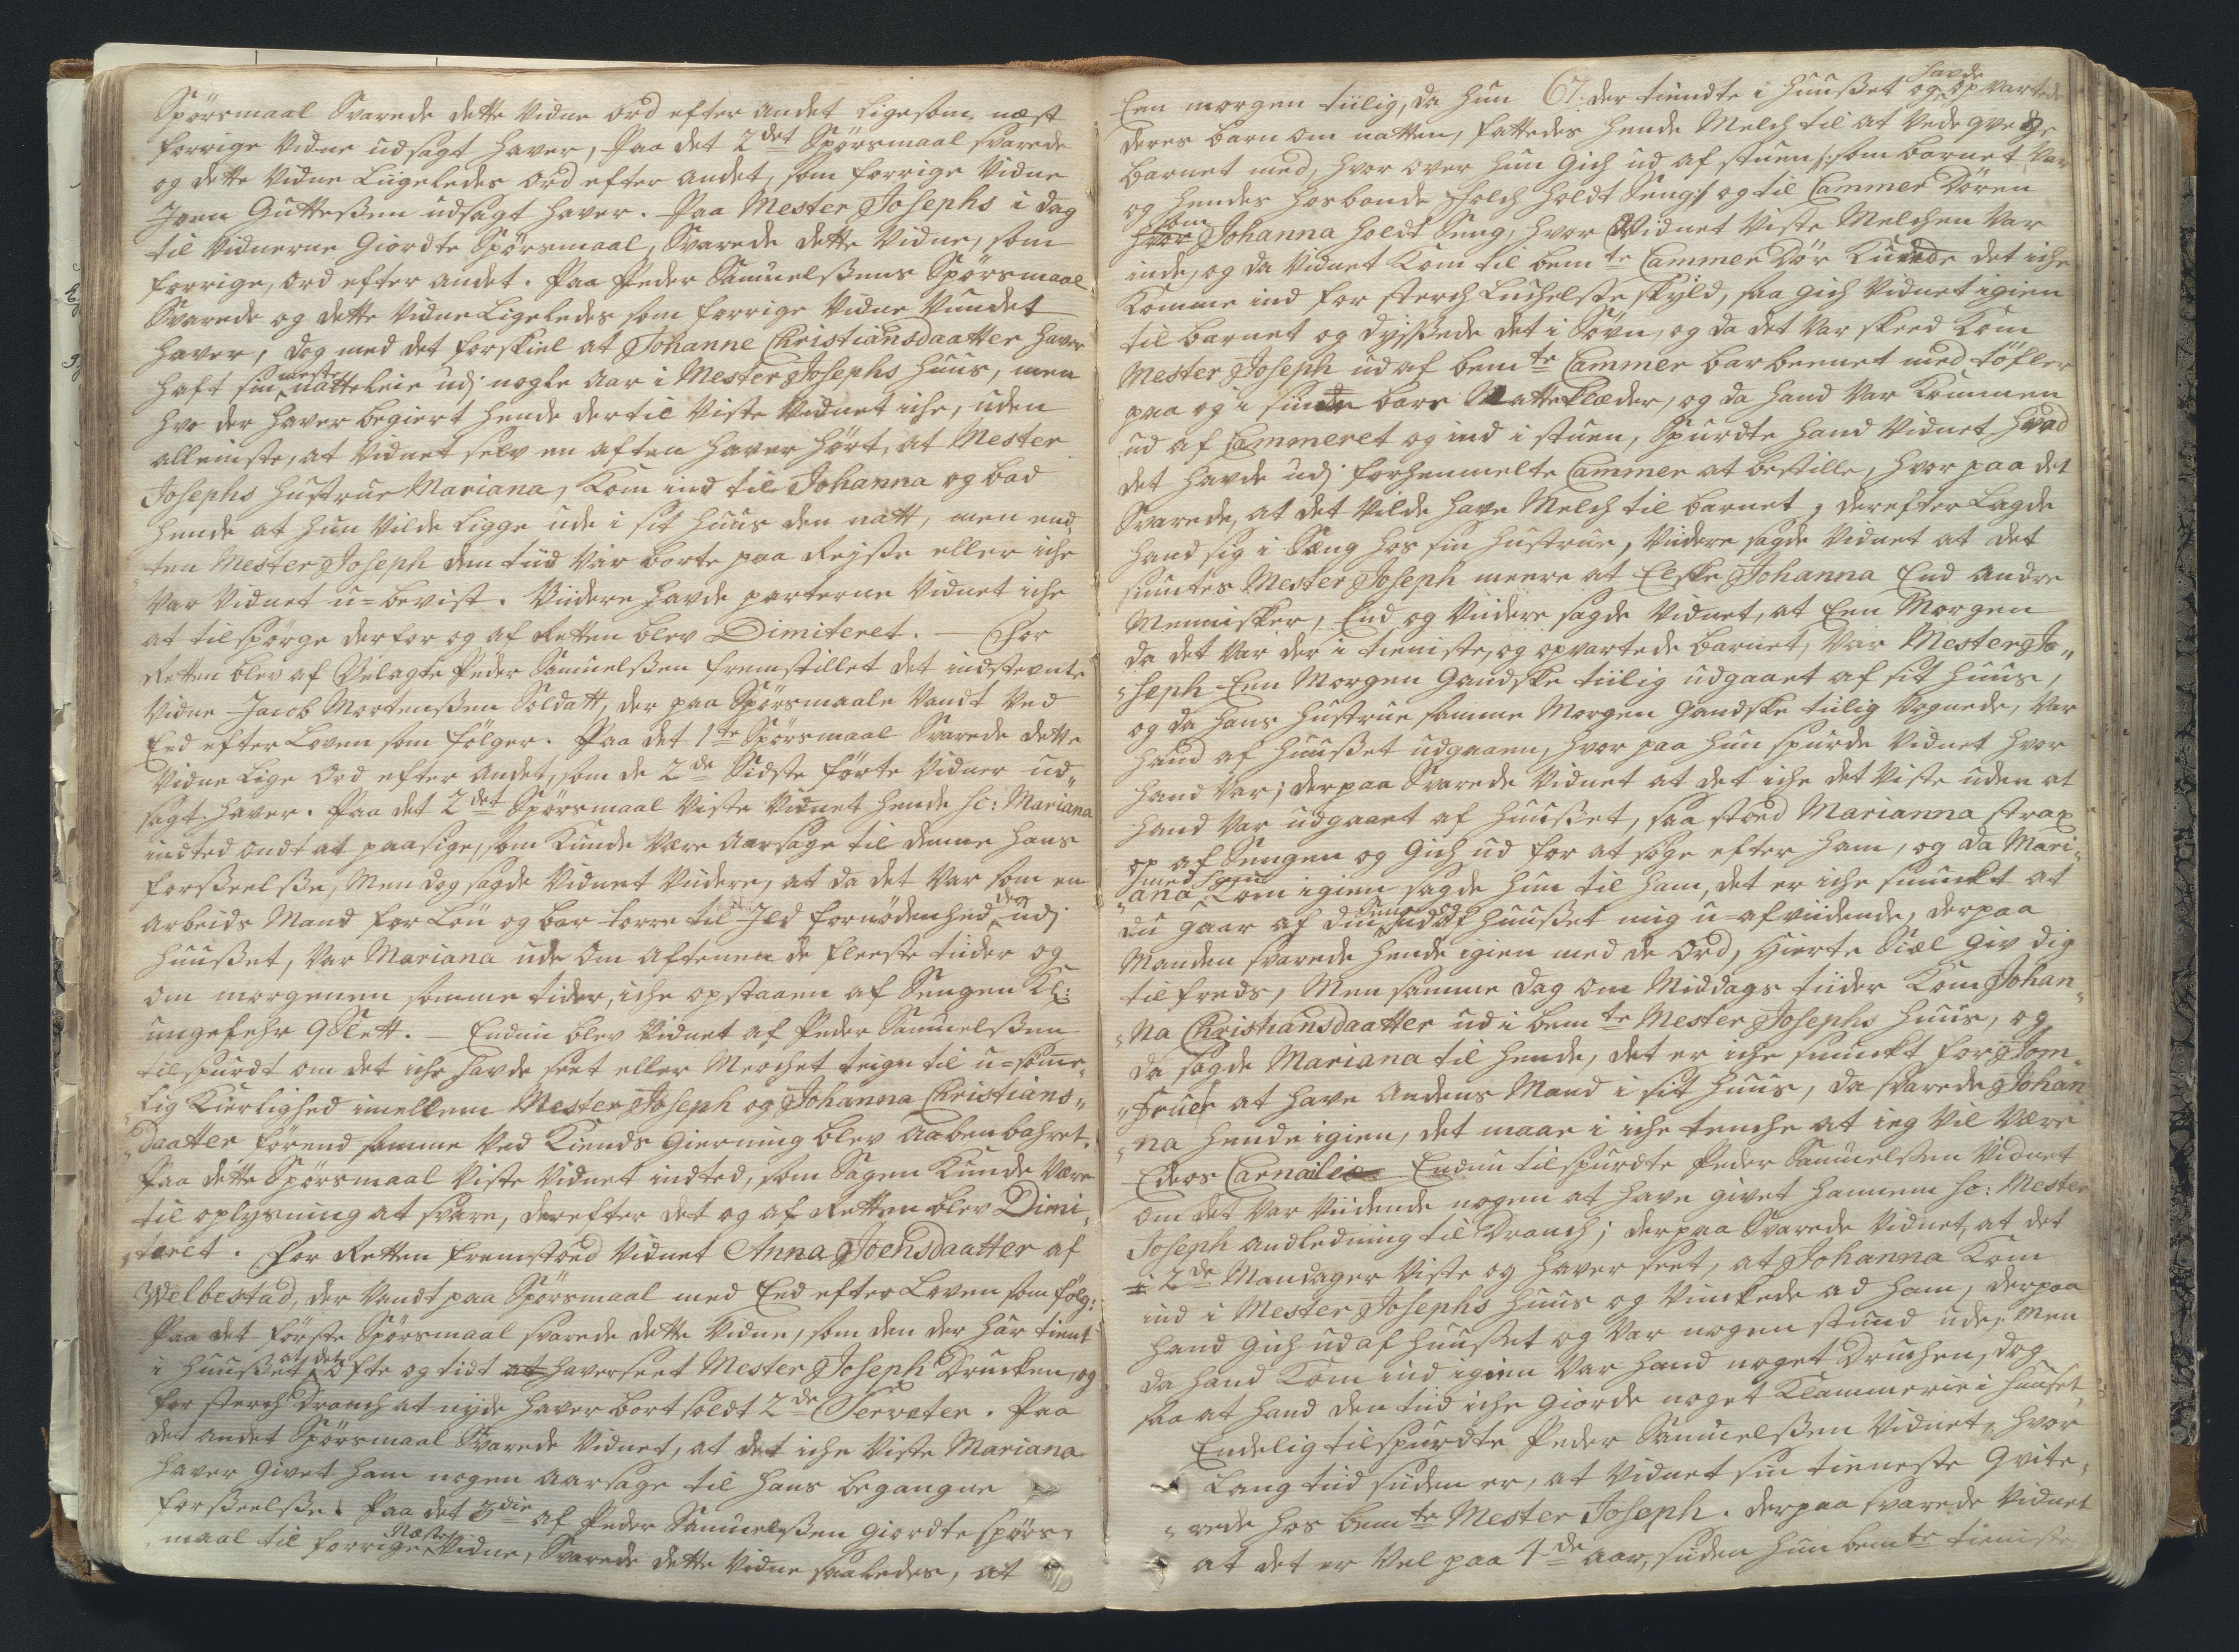 Spörsmaal Svarede dette Vidne Ord efter andet ligesom næst
forrige Vidne udsagt haver, Paa det 2det Spörsmaal svarede
og dette Vidne Liigeledes Ord efter andet, som forrige Vidne
Iven Gutteßen udsagt haver. Paa Mester Josephs i dag
til Vidnerne Giordte Spörsmaal, Svarede dette Vidne, som
forrige, Ord efter andet. Paa Peder Samuelßens Spörsmaal
Svarede og dette Vidne Ligeledes som forrige Vidne Vundet
haver, dog med det forskiel at Johanne Christiansdaatter haver
haft sin meste natteleie udj nogle Aar i Mester Josephs Huus, men
hvo der haver begiert hende dertil Viste Vidnet iche, uden
alleniste, at Vidnet selv en aften haver hört, at Mester
Josephs Hustrue Mariana, Kom ind til Johanna og bad
hende at hun Vilde Ligge ude i sit Huus den natt, men end,,
,,ten Mester Joseph den tiid Var borte paa Reyße eller iche
Var Vidnet u=bevist. Viidere havde parterne Vidnet iche
at tilspörge derfor og af Retten blev Dimiteret. — For
Retten blev af Velagte Peder Samuelßen fremstillet det indstevnte
Vidne Jacob Mortenßen Soldatt, der paa Spörsmaale Vandt Ved
Eed efter Loven som fölger. Paa det 1te Spörsmaal Svarede dette
Vidne Lige Ord efter Andet, som de 2de Sidste förte Vidner ud,,
sagt haver. Paa det 2det Spörsmaal Viste Vidnet hende sc: Mariana
indted ondt at paasige, som Kunde Være Aarsage til denne hans
forßeelße, Men dog sagde Vidnet Viidere, at da det Var som en
Arbeids Mand for Lön og bar torre til Ild fornödenhed der udj
Huußet, Var Mariana ude Om Aftenen de fleeste tiider og
om morgenen somme tider, iche opstaaen af Sengen Kl:
ungefehr 9 Slett. — Endnu blev Vidnet af Peder Samuelßen
tilspurdt om det iche havde seet eller Merchet teign til u=söme,,
,,lig Kierlighed imellem Mester Joseph og Johanna Christians,,
,,Daatter, förend samme Ved Kiends Gierning blev Aabenbahret.
Paa dette Spörsmaal Viste Vidnet indted, som Sagen Kunde Være
til oplysning at svare, derefter det og af Retten blev Dimi,,
,,teret. For Retten fremstoed Vidnet Anna Joensdaatter af
Welbestad, der Vandt paa Spörsmaal med Eed efter Loven som fölg:
Paa det förste Spörsmaal svarede dette Vidne, som den der har tient
i Huußet at det ofte og tidt at haver seet Mester Joseph Drucken, og
for sterch Dranch at nyde haver bort soldt 2de Serveter. Paa
det andet Spörsmaal Svarede Vidnet, at det iche Viste Mariana
haver Givet ham nogen Aarsage til hans begangne
forßeelße. Paa det 3die af Peder Samuelßen Giordte spörs,,
maal til forrige Næste Vidne, Svarede dette Vidne saaledes, at
Een morgen tiilig, da hun 67. der tiendte i Huußet og havde opvartede
deres barn om natten, fattedes hende Melch til at Vede gvege
barnet med, hvor over hun Gich ud af stuen /: som barnet Var
og hendes Hosbonde folch holdt Seng :/ og til Cammer Dören
hvor som Johanna holdt Seng, hvor Vidnet Viste Melchen Var
inde, og da Vidnet Kom til bemte Cammer Dör Kunde det iche
Komme ind for sterch Luchelße skyld, saa Gich Vidnet igien
til barnet og dyssede det i Sövn, og da det Var skeed Kom
Mester Joseph ud af bemte Cammer barbeenet med töfler
paa og i sinde bare Natteklæder, og da hand Var Kommen
ud af Cammeret og ind i stuen, Spurdte hand Vidnet hvad
det havde udj forhenmelte Cammer at bestille, hvor paa det
Svarede, at det Vilde have Melch til barnet, derefter Lagde
hand sig i Seng hos sin Hustrue, Viidere sagde Vidnet at det
siuntes Mester Joseph meere at Elske Johanna End andre
Mennisker, End og Viidere sagde Vidnet, at Een Morgen
da det Var der i tieniste, og opvartede barnet, Var Mester Jo,,
,,seph Een Morgen Gandske tiilig udgaaet af sit Huus,
og da hans Hustrue samme Morgen Gandske tiilig Vognede, Var
hand af Huußet udgaaen, hvor paa hun spurde Vidnet hvor
hand Var; derpaa Svarede Vidnet at det iche det Viste uden at
hand Var udgaaet af Huußet, saa stoed Marianna strax
op af Sengen og Gich ud for at söge efter ham, og da Mari,,
,,ana med ham Kom igien sagde hun til ham, det er iche smuckt at
du gaar af din Seng og ud af Huußet mig u=afviidende, derpaa
Manden svarede hende igien med de Ord, Hierte Siæl Giv dig
tilfreds, Men samme dag om Middags tiider Kom Johan,,
,,na Christiansdaatter ud i bemte Mester Josephs Huus, og
da sagde Mariana til hende, det er iche smuckt for Jom,,
,,fruer at have Andens Mand i sit Huus, da svarede Johan
,,na hende igien, det maae i iche tenche at ieg Vil Være
Eders Carnailie Endnu tilspurdte Peder Samuelßen Vidnet
om det Var Viidende nogen at have givet hannem sc: Mester
Joseph andledning til Dranch; derpaa Svarede Vidnet, at det
i 2de Mandager Viste og haver seet, at Johanna Kom
ind i Mester Josephs Huus og Vinckede ad ham, derpaa
hand Gich ud af Huußet og Var nogen stund ude, Men
da hand Kom ind igien Var hand noget Druchen, dog
saa at hand den tiid iche Giorde noget Klammerie i Huuset,
Endelig tilspurdte Peder Samuelßen Vidnet, hvor
Lang tiid siiden er, at Vidnet sin tieneste Qvite,,
,,rede hos bemte Mester Joseph. derpaa svarede Vidnet
at det er Vel paa 4de Aar, siiden hun bemte tieniste